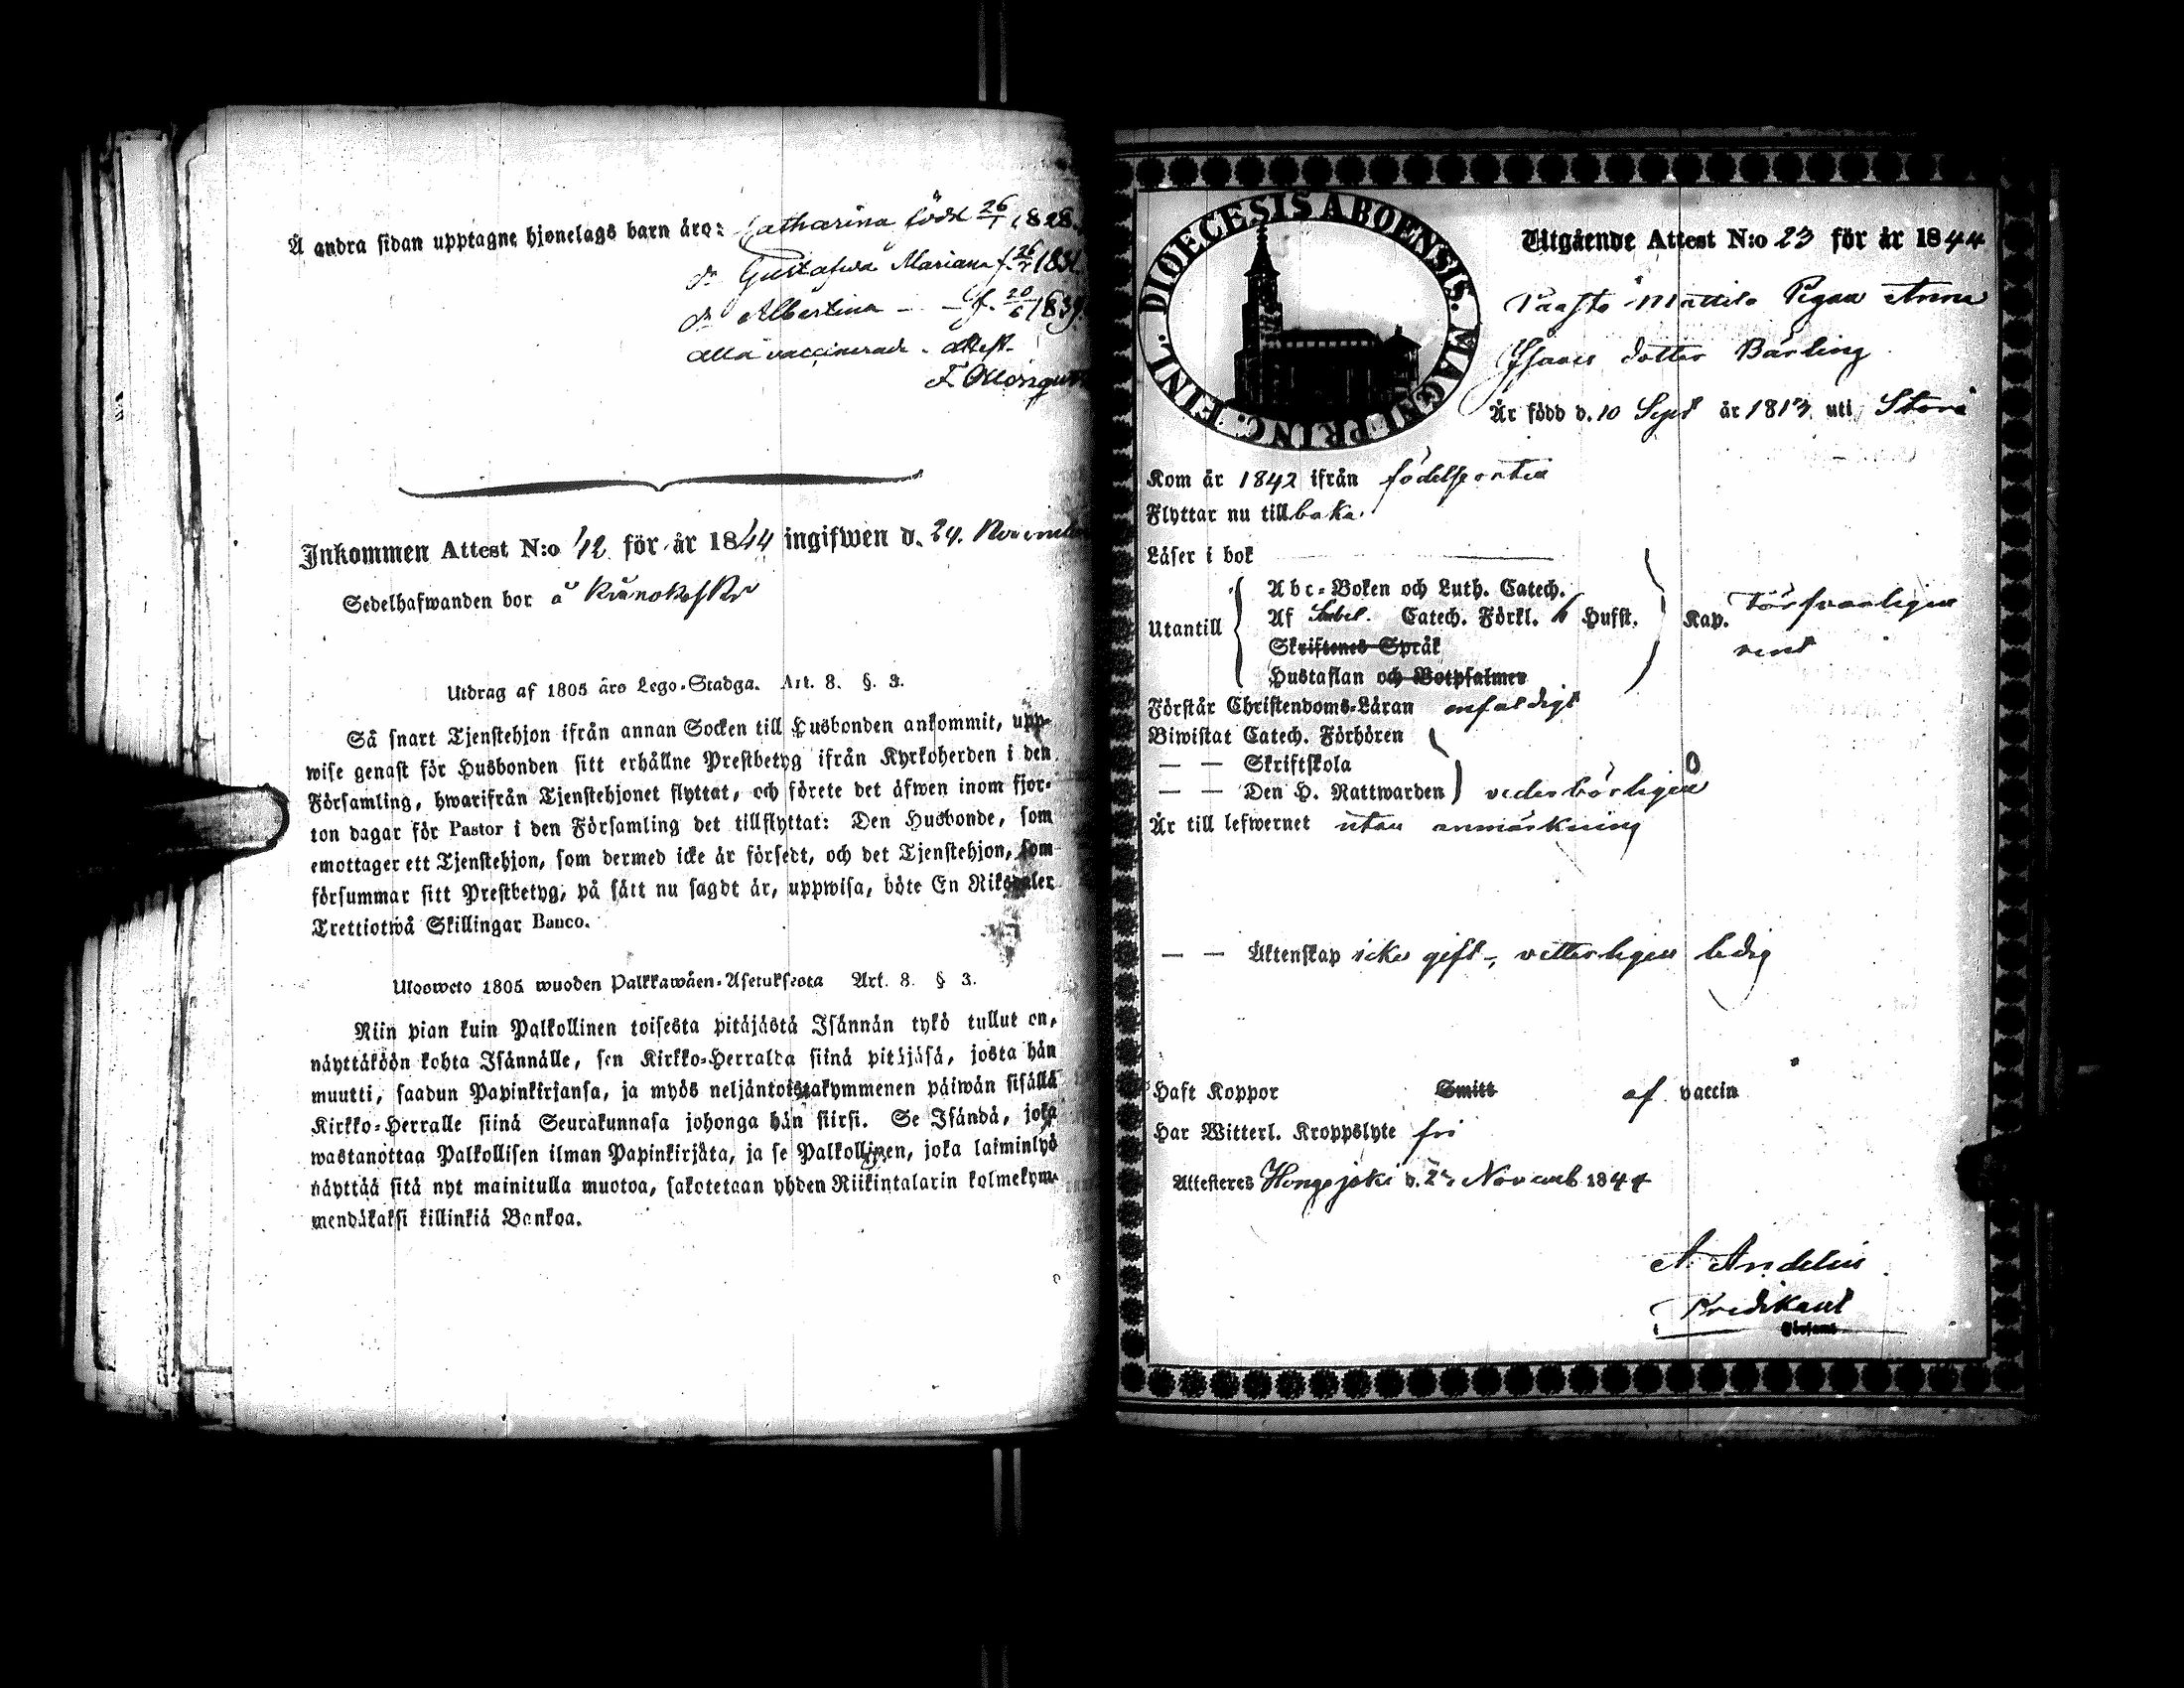 Å andra sidan upptagne hjonelags barn äro: Catharina född 26/1 1828.
Dr Gustafva Mariana f. 26/7 1831.
Dr Albertina — — f. 20/6 1839.
alla vaccinerade. attest.
F.
Inkommen Attest N:o 42 för år 1844 ingifwen d. 24. November
Sedelhafwanden bor å
Utdrag af 1805 års Lego-Stadga. Art. 8. §. 3.
Så snart Tjenstehjon ifrån annan Socken till Husbonden ankommit, upp-
wise genast för Husbonden sitt erhållne Prestbetyg ifrån Kyrkoherden i den
Församling, hwarifrån Tjenstehjonet flyttat, och förete det äfwen inom fjor-
ton dagar för Pastor i den Församling det tillflyttat: Den Husbonde, som
emottager ett Tjenstehjon, som dermed icke är försedt, och det Tjenstehjon, som
försummar sitt Prestbetyg, på sätt nu sagdt är, uppwisa, böte En Riksdaler
Trettiotwå Skillingar Banco.
Ulosweto 1805 wuoden Palkkawäen-Asetuksesta Art. 8. § 3.
Niin pian kuin Palkollinen toisesta pitäjästä Isännän tykö tullut on,
näyttäköön kohta Isännälle, sen Kirkko-Herralda siinä pitäjäsä, josta hän
muutti, saadun Papinkirjansa, ja myös neljäntoistakymmenen päiwän sisällä
Kirkko-Herralle siinä Seurakunnasa johonga hän siirsi. Se Isändä, joka
wastanottaa Palkollisen ilman Papinkirjäta, ja se Palkollinen, joka laiminlyö
näyttää sitä nyt mainitulla muotoa, sakotetaan yhden Riikintalarin kolmekym-
mendäkaksi killinkiä Bankoa.
DIOECESIS ABOENSIS. MAGNI PRINC. FINL.
Utgående Attest N:o 23 för år 1844
Paasto Mattila Pigan Anna
Isaacs dotter Bärling
Är född d. 10 Sept år 1813 uti Storå
Kom år 1842 ifrån födelseorten
Flyttar nu tillbaka.
Läser i bok
Abc-Boken och Luth. Catech.
Utantill Af Catech. Förkl. 6 Hufst. Kap. försvarligen
Skriftenes Språk rent
Hustaflan och Botpsalmer
Förstår Christendoms-Läran enfaldigt
Biwistat Catech. Förhören
— — Skriftskola
— — Den H. Nattwarden vederbörligen
Är till lefwernet utan anmärkning
— — Äktenskap icke gift, vetterligen ledig
Haft Koppor Smitt af vaccin
Har Witterl. Kroppslyte fri
Attesteres Hongojoki d. 2 Novemb 1844
A. Andelin
Predikant